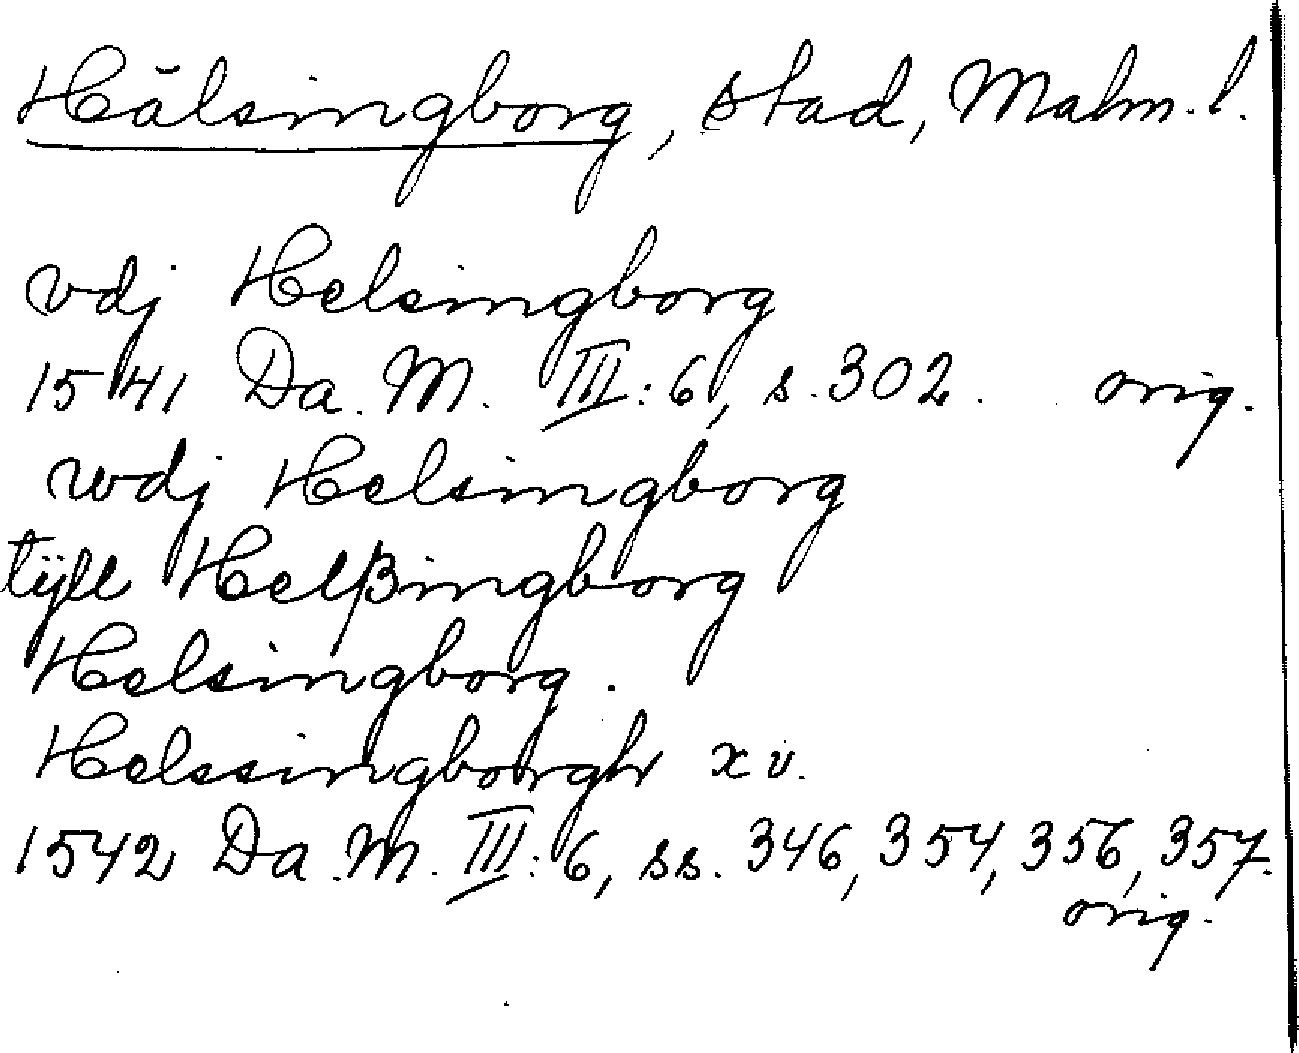 Hälsingborg, stad, Malm. l.
vdj Helsingborg
1541 Da. M. III: 6, s. 302. orig.
wdj Helsingborg
tÿll Helßingborg
Helsingborg.
Helssingborgh x v.
1542 Da. M. III: 6, ss. 346, 354, 356, 357.
orig.